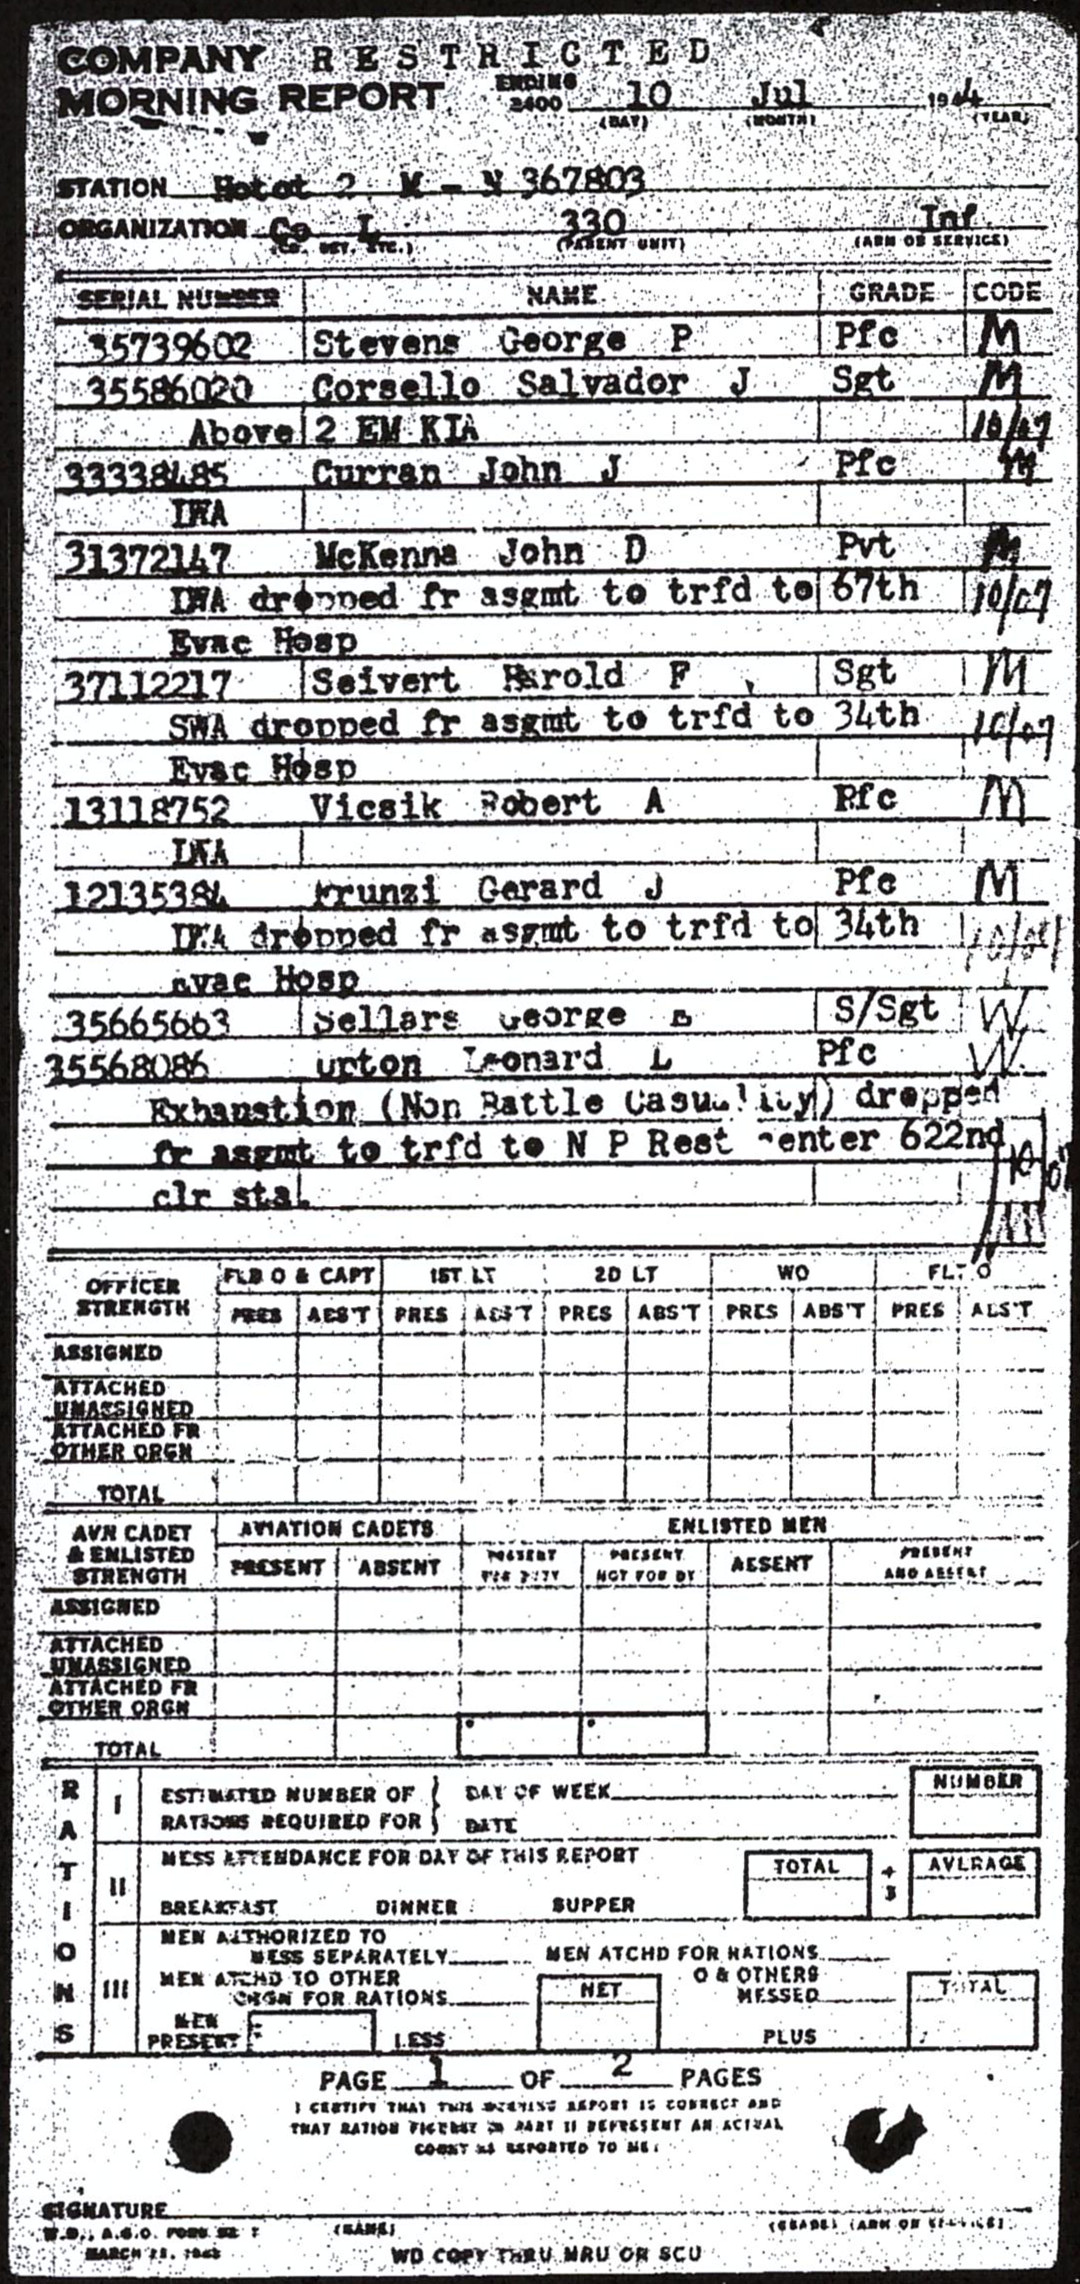 COMPANY RESTRICTED
MORNING REPORT ENDING 2400 10 Jul 1944
(DAY) (MONTH) (YEAR)
STATION Hotot 2 M - N 367803
ORGANIZATION Co L 330 Inf
(CO. DET, ETC.) (PARENT UNIT) (ARM OR SERVICE)
SERIAL NUMBER NAME GRADE CODE
35739602 Stevens George P Pfc M
35586020 Corsello Salvador J Sgt M
Above 2 EM KIA 10/07
33338485 Curran John J Pfc M
LWA
31372147 McKenna John D Pvt M
LWA dropped fr asgmt to trfd to 67th 10/07
Evac Hosp
37112217 Seivert Harold F Sgt M
SWA dropped fr asgmt to trfd to 34th 10/07
Evac Hosp
13118752 Vicsik Robert A Pfc M
LWA
12135384 runzi Gerard J Pfc M
LWA dropped fr asgmt to trfd to 34th 10/07
Evac Hosp
35665663 Sellars George B S/Sgt W
35568086 urton Leonard L Pfc W
Exhaustion (Non Battle Casuality) dropped
fr asgmt to trfd to N P Rest Center 622nd
clr sta.
OFFICER STRENGTH FLD O & CAPT 1ST LT 2D LT WO FLT O
PRES ABS'T PRES ABS'T PRES ABS'T PRES ABS'T PRES ABS'T
ASSIGNED
ATTACHED UNASSIGNED
ATTACHED FR OTHER ORGN
TOTAL
AVN CADET & ENLISTED STRENGTH AVIATION CADETS ENLISTED MEN
PRESENT ABSENT PRESENT FOR DUTY PRESENT NOT FOR DY ABSENT PRESENT AND ABSENT
ASSIGNED
ATTACHED UNASSIGNED
ATTACHED FR OTHER ORGN
TOTAL
RATIONS
I ESTIMATED NUMBER OF RATIONS REQUIRED FOR } DAY OF WEEK NUMBER
DATE
II MESS ATTENDANCE FOR DAY OF THIS REPORT TOTAL ÷ 3 AVERAGE
BREAKFAST DINNER SUPPER
III MEN AUTHORIZED TO MESS SEPARATELY MEN ATCHD FOR RATIONS
MEN ATCHD TO OTHER ORGN FOR RATIONS NET O & OTHERS MESSED TOTAL
MEN PRESENT LESS PLUS
PAGE 1 OF 2 PAGES
I CERTIFY THAT THIS MORNING REPORT IS CORRECT AND
THAT RATION FIGURE IN PART II REPRESENT AN ACTUAL
COUNT AS REPORTED TO ME:
SIGNATURE
(NAME) (GRADE) (ARM OR SERVICE)
W.D., A.G.O. FORM
MARCH 1943
WD COPY THRU MRU OR SCU